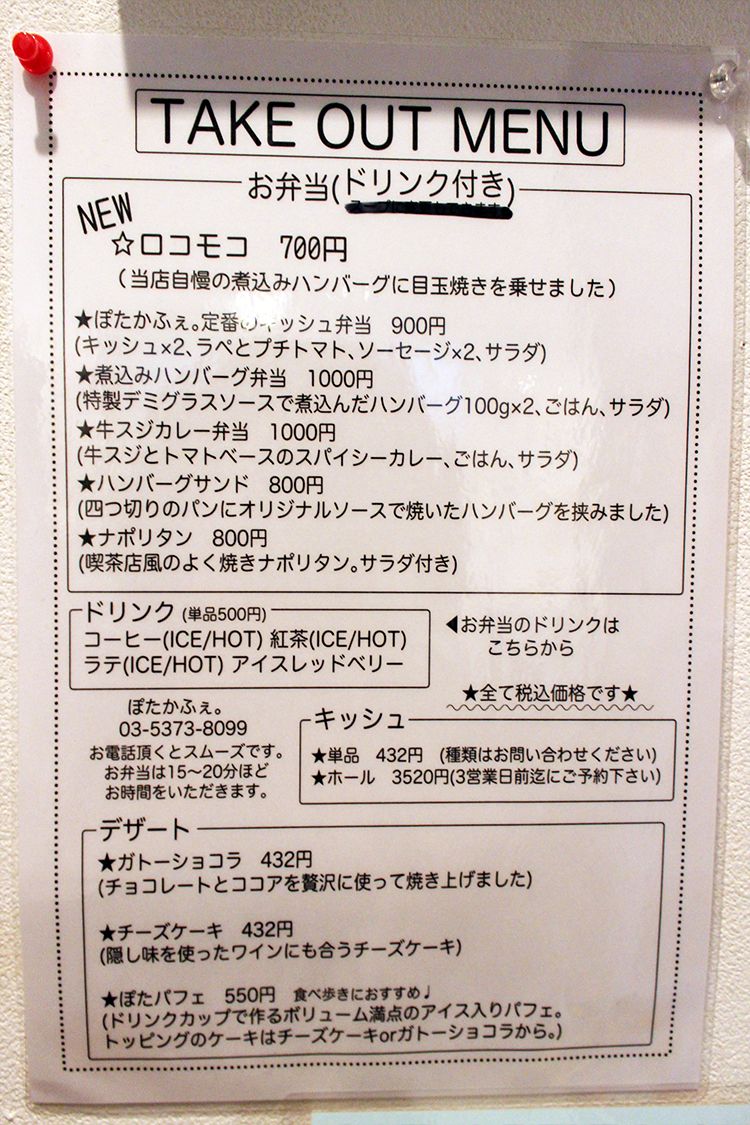 TAKE OUT MENU
お弁当(ドリンク付き)
NEW
☆ロコモコ 700円
(当店自慢の煮込みハンバーグに目玉焼きを乗せました)
★ぽたかふぇ。定番のキッシュ弁当 900円
(キッシュ×2、ラペとプチトマト、ソーセージ×2、サラダ)
★煮込みハンバーグ弁当 1000円
(特製デミグラスソースで煮込んだハンバーグ100g×2、ごはん、サラダ)
★牛スジカレー弁当 1000円
(牛スジとトマトベースのスパイシーカレー、ごはん、サラダ)
★ハンバーグサンド 800円
(四つ切りのパンにオリジナルソースで焼いたハンバーグを挟みました)
★ナポリタン 800円
(喫茶店風のよく焼きナポリタン。サラダ付き)
ドリンク (単品500円)
コーヒー(ICE/HOT) 紅茶(ICE/HOT)
ラテ(ICE/HOT) アイスレッドベリー
◀お弁当のドリンクは
こちらから
★全て税込価格です★
ぽたかふぇ。
03-5373-8099
お電話頂くとスムーズです。
お弁当は15〜20分ほど
お時間をいただきます。
キッシュ
★単品 432円 (種類はお問い合わせください)
★ホール 3520円(3営業日前迄にご予約下さい)
デザート
★ガトーショコラ 432円
(チョコレートとココアを贅沢に使って焼き上げました)
★チーズケーキ 432円
(隠し味を使ったワインにも合うチーズケーキ)
★ぽたパフェ 550円 食べ歩きにおすすめ♩
(ドリンクカップで作るボリューム満点のアイス入りパフェ。
トッピングのケーキはチーズケーキorガトーショコラから。)